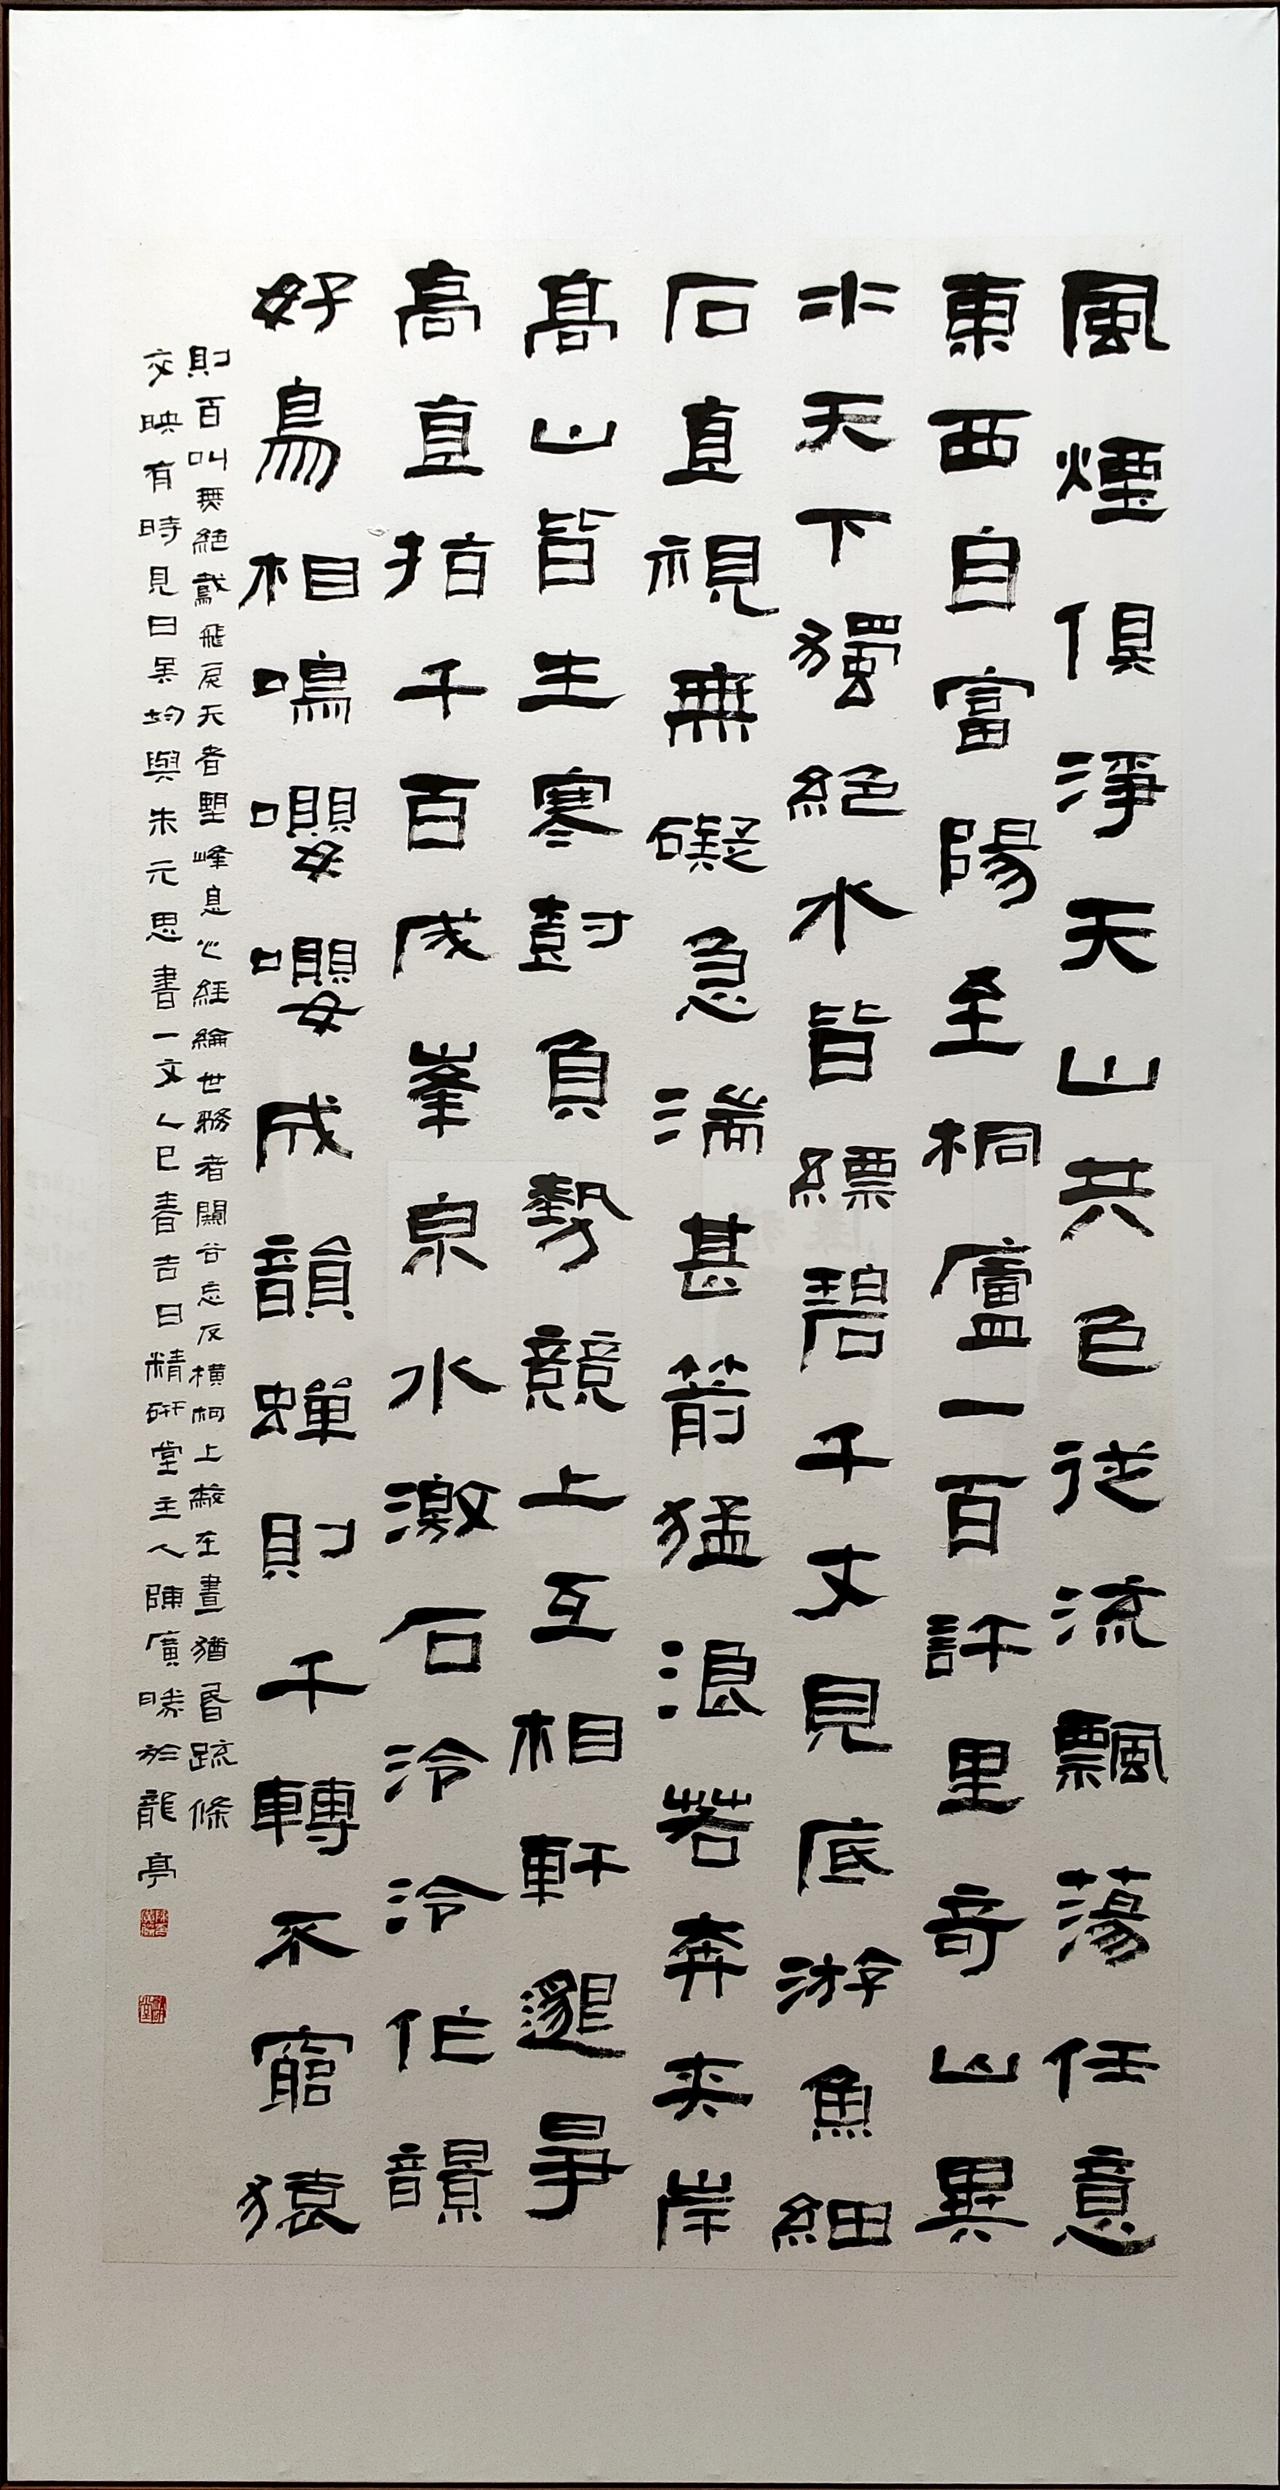 風煙俱淨天山共色從流飄蕩任意
東西自富陽至桐廬一百許里奇山異
水天下獨絕水皆縹碧千丈見底游魚細
石直視無礙急湍甚箭猛浪若奔夾岸
高山皆生寒樹負勢競上互相軒邈爭
高直指千百成峯泉水激石泠泠作韻
好鳥相鳴嚶嚶成韻蟬則千轉不窮猿
則百叫無絕鳶飛戾天者望峰息心經綸世務者闚谷忘反橫柯上蔽在晝猶昏疏條
交映有時見日吳均與朱元思書一文乙巳春吉日精研堂主人陳廣勝於龍亭